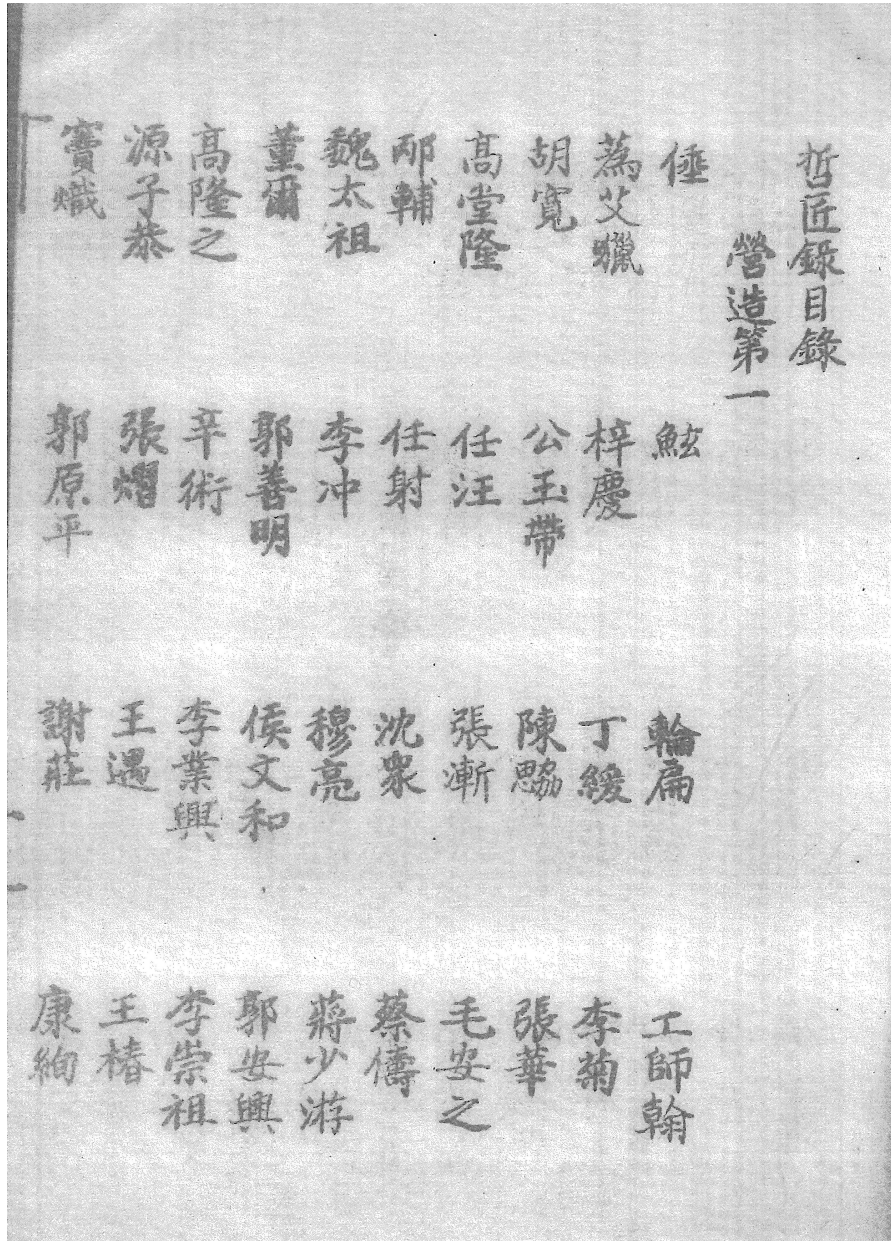 哲匠錄目錄
營造第一
倕 鮌 輪扁 工師翰
蔿艾獵 梓慶 丁緩 李菊
胡寬 公玉帶 陳勰 張華
髙堂隆 任汪 張漸 毛安之
邴輔 任射 沈衆 蔡儔
魏太祖 李冲 穆亮 蔣少游
董爾 郭善明 侯文和 郭安興
髙隆之 辛術 李業興 李崇祖
源子恭 張熠 王遇 王椿
竇熾 郭原平 謝莊 康絢